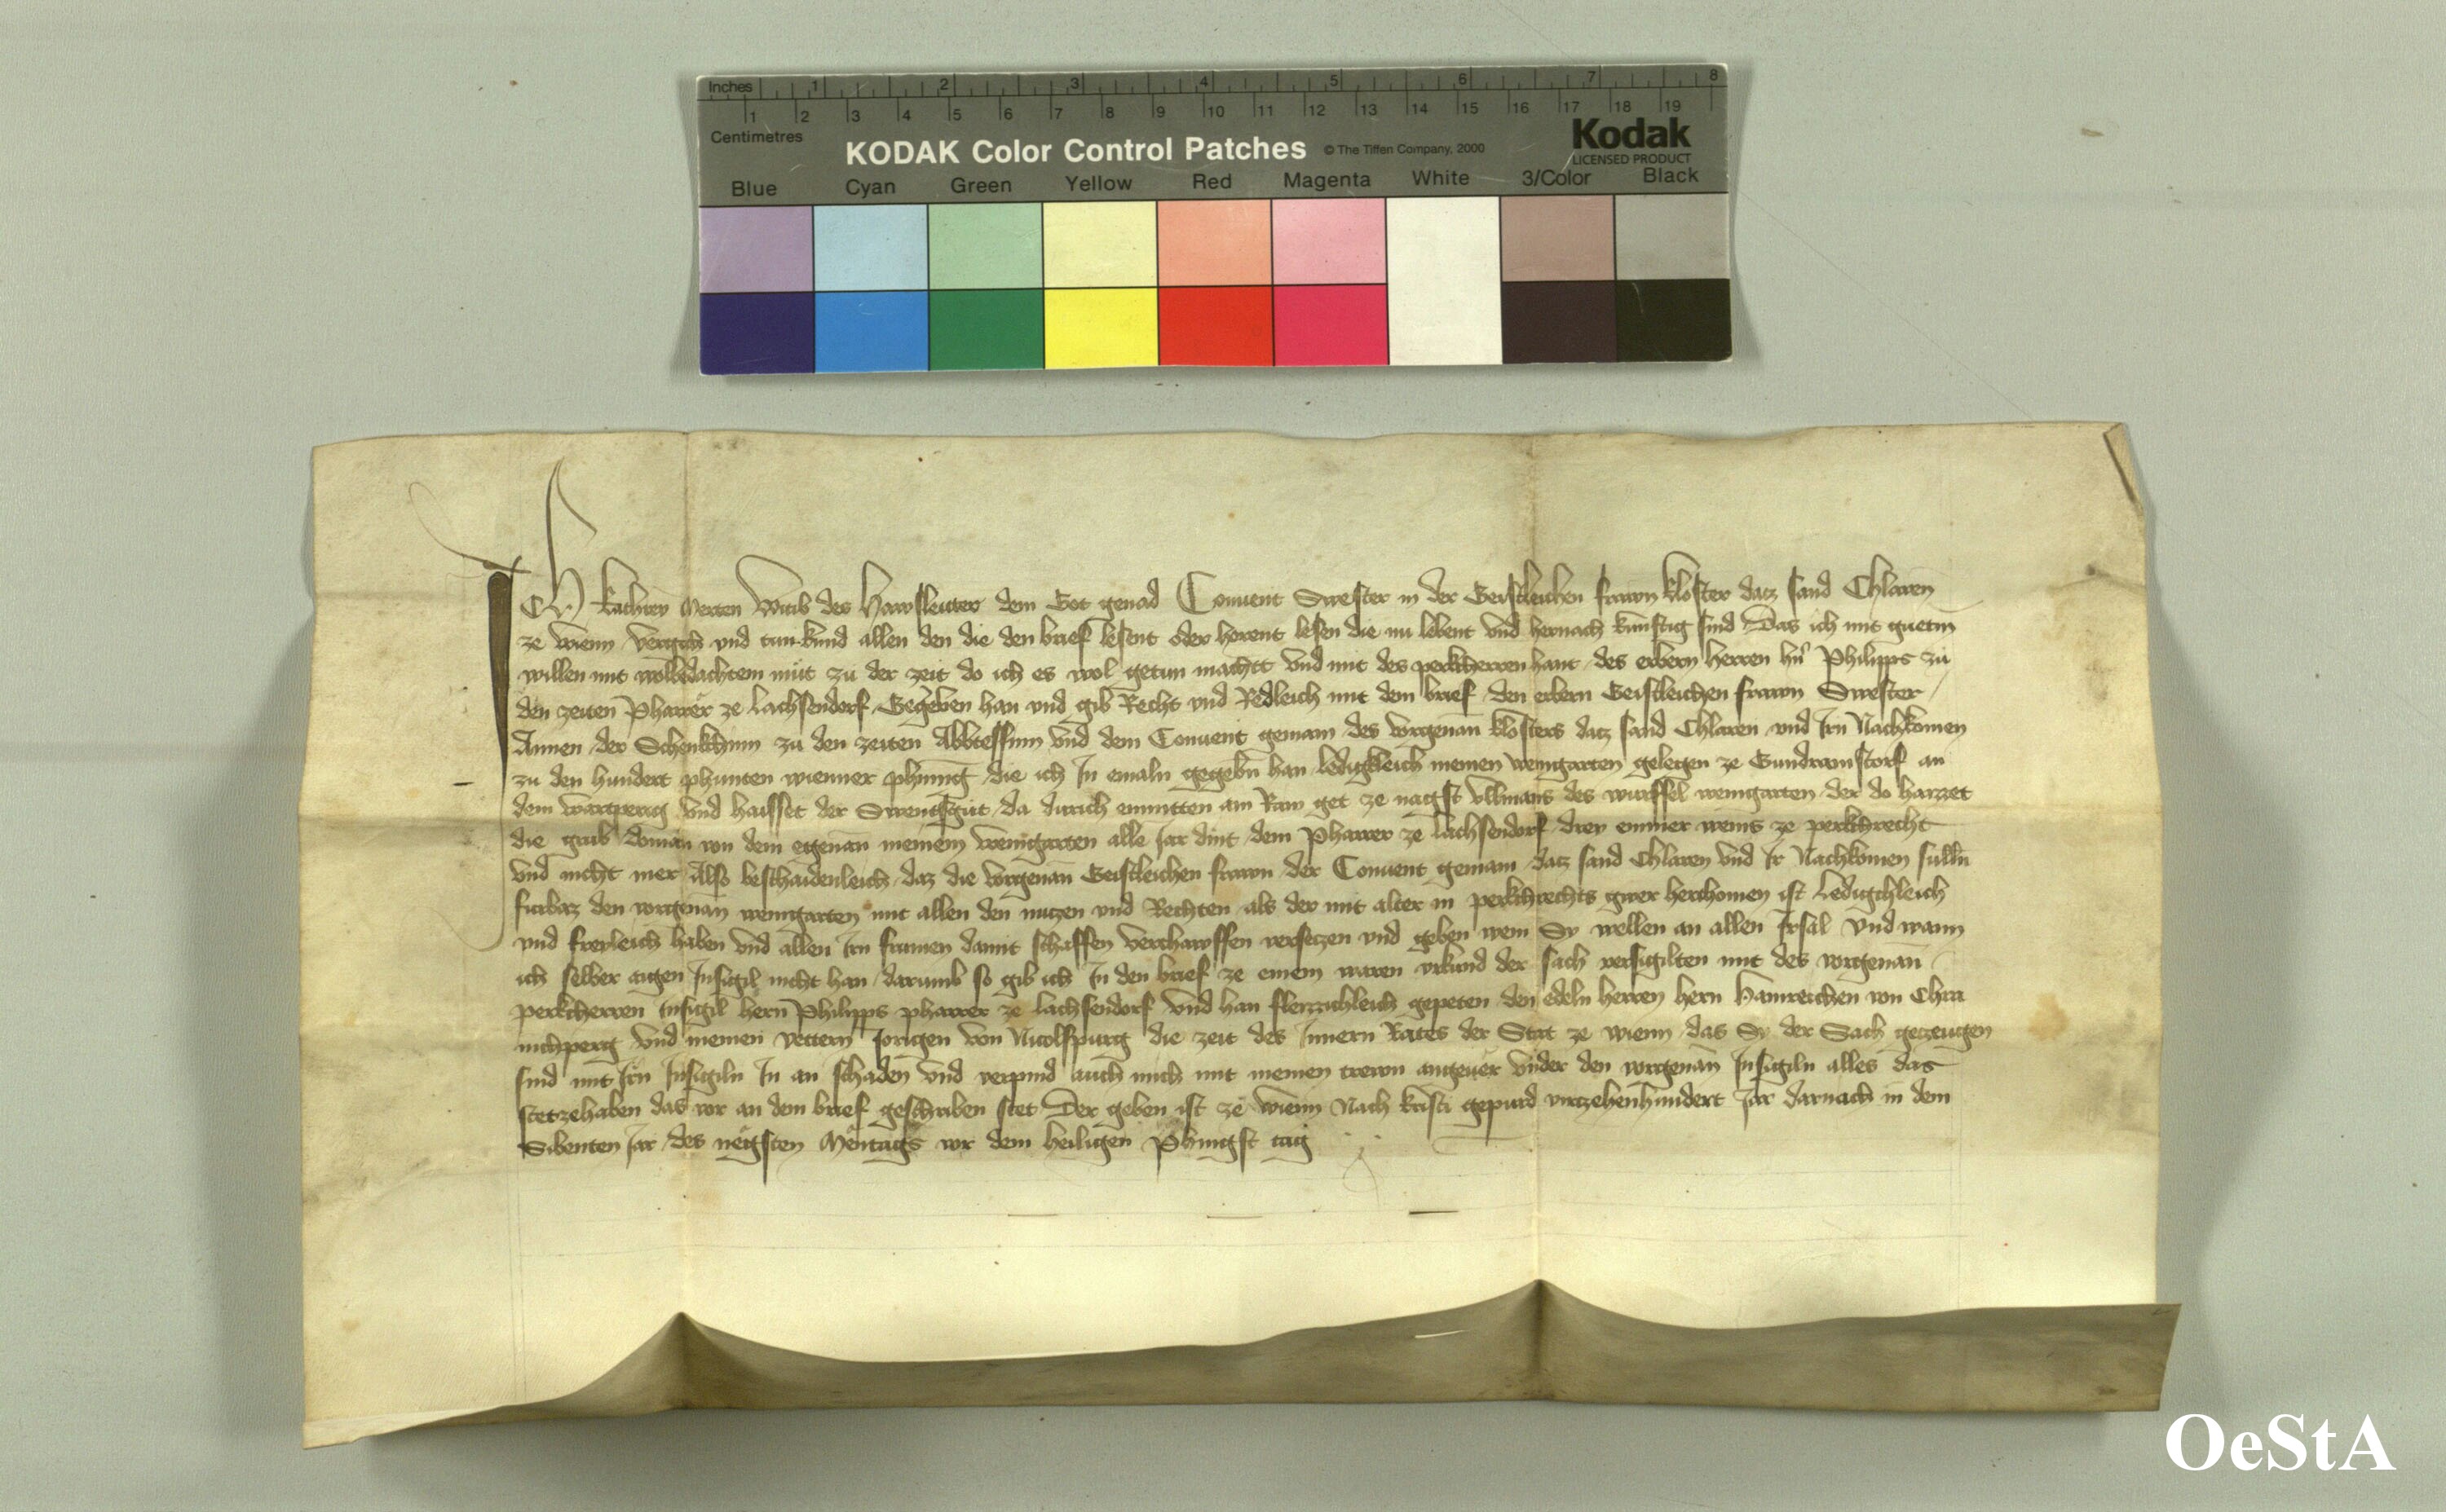 Inches 1 2 3 4 5 6 7 8
1 2 3 4 5 6 7 8 9 10 11 12 13 14 15 16 17 18 19
Centimetres
KODAK Color Control Patches © The Tiffen Company, 2000 Kodak
LICENSED PRODUCT
Blue Cyan Green Yellow Red Magenta White 3/Color Black
ICH Kathrey Merten Witib des Hawsleitter dem Got genad Conuent Swester in der Geistleichen frawn kloster datz sand Chlaren
ze wienn vergich vnd tun kund allen den die den brief lesent oder horent lesen die nu lebent vnd hernach kunftig sind Das ich mit guetm
willen mit wolbedachtem müt zu der zeit do ich es wol getun machtt vnd mit des perkherren hant des erbern herren hn Philipps zü
den zeiten Pharrer ze lachsendorf Gegeben han vnd gib Recht vnd Redleich mit dem brief den erbern Geistleichen frawn Swester
Annen der Schenkhinn zu den zeiten Abbtessinn vnd dem Conuent gemain des vorgenan klosters datz sand Chlaren vnd Irn Nachkomen
zu den hundert phunten wienner phning die ich In emaln gegebn han ledigkleich meinen weingarten gelegen ze Gundramstorf an
dem wartperg vnd haisset der da durich enmitten am Rain get ze nagst vllmans des würffel weingarten der do haizzet
die grub douan von dem egenan meinem weingarten alle Jar dint dem Pharrer ze lachsendorf drey emmer weins ze perkhrecht
vnd nicht mer Also beschaidenleich daz die vorgenan Geistleichen frawn der Conuent gemain datz sand Chlaren vnd Ir Nachkomen sulln
furbaz den vorgenan weingarten mit allen den nutzen vnd Rechten als der mit alter in perkhrechts gwer herchomen ist ledigchleich
vnd freyleich haben vnd allen Irn frumen damit schaffen verchawffen versetzen vnd geben wem Sy wellen an allen Irsal Vnd wann
ich selber aigen Insigil nicht han darumb so gib ich In den brief ze einem waren vrkund der sach versigilten mit des vorgenan
perkherren Insigil hern Philipps pharrer ze lachsendorf vnd han fleizzichleich gepeten den edeln herren hern Hainreichen von Chra
nichperg vnd meinen vettern Jorigen von Nicolspurg die zeit des Innern Rates der Stat ze wienn das Sy der Sach gezeugen
sind mit Irn Insigiln In an schaden vnd verpind auch mich mit meinen trewn angeuer vnder den vorgenan Insigiln alles das
stetzehaben das vor an dem brief geschriben stet Der geben ist ze wienn Nach kristi gepurd virtzehenhundert Jar darnach in dem
Sibenten Jar des negsten Mentags vor dem heiligen Phingst tag
OeStA